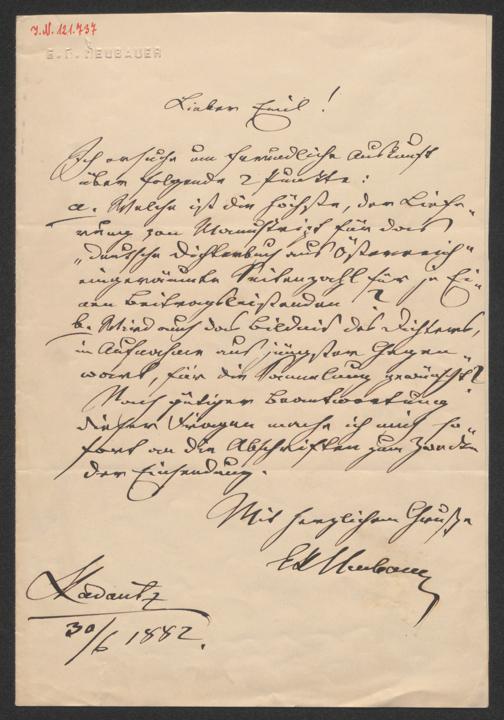 J.N. 121.737
E. R. NEUBAUER
Lieber Emil!
Ich ersuche um freundliche Auskunft
über folgende 2 Punkte:
a. Welche ist die höchste, der Liefe-
rung von Manuskript für das
„deutsche Dichterbuch aus Österreich"
eingeräumte Seitenzahl für je Ei-
nen Beitragsleistenden?
b. Wird auch das Bildnis des Dichters,
in Aufnahme aus jüngster Gegen-
wart, für die Sammlung gewünscht?
Nach gütiger Beantwortung
dieser Fragen mache ich mich so-
fort an die Abschriften zum Zwecke
der Einsendung.
Mit herzlichem Gruße
ER Neubauer
Radautz
30/6 1882.